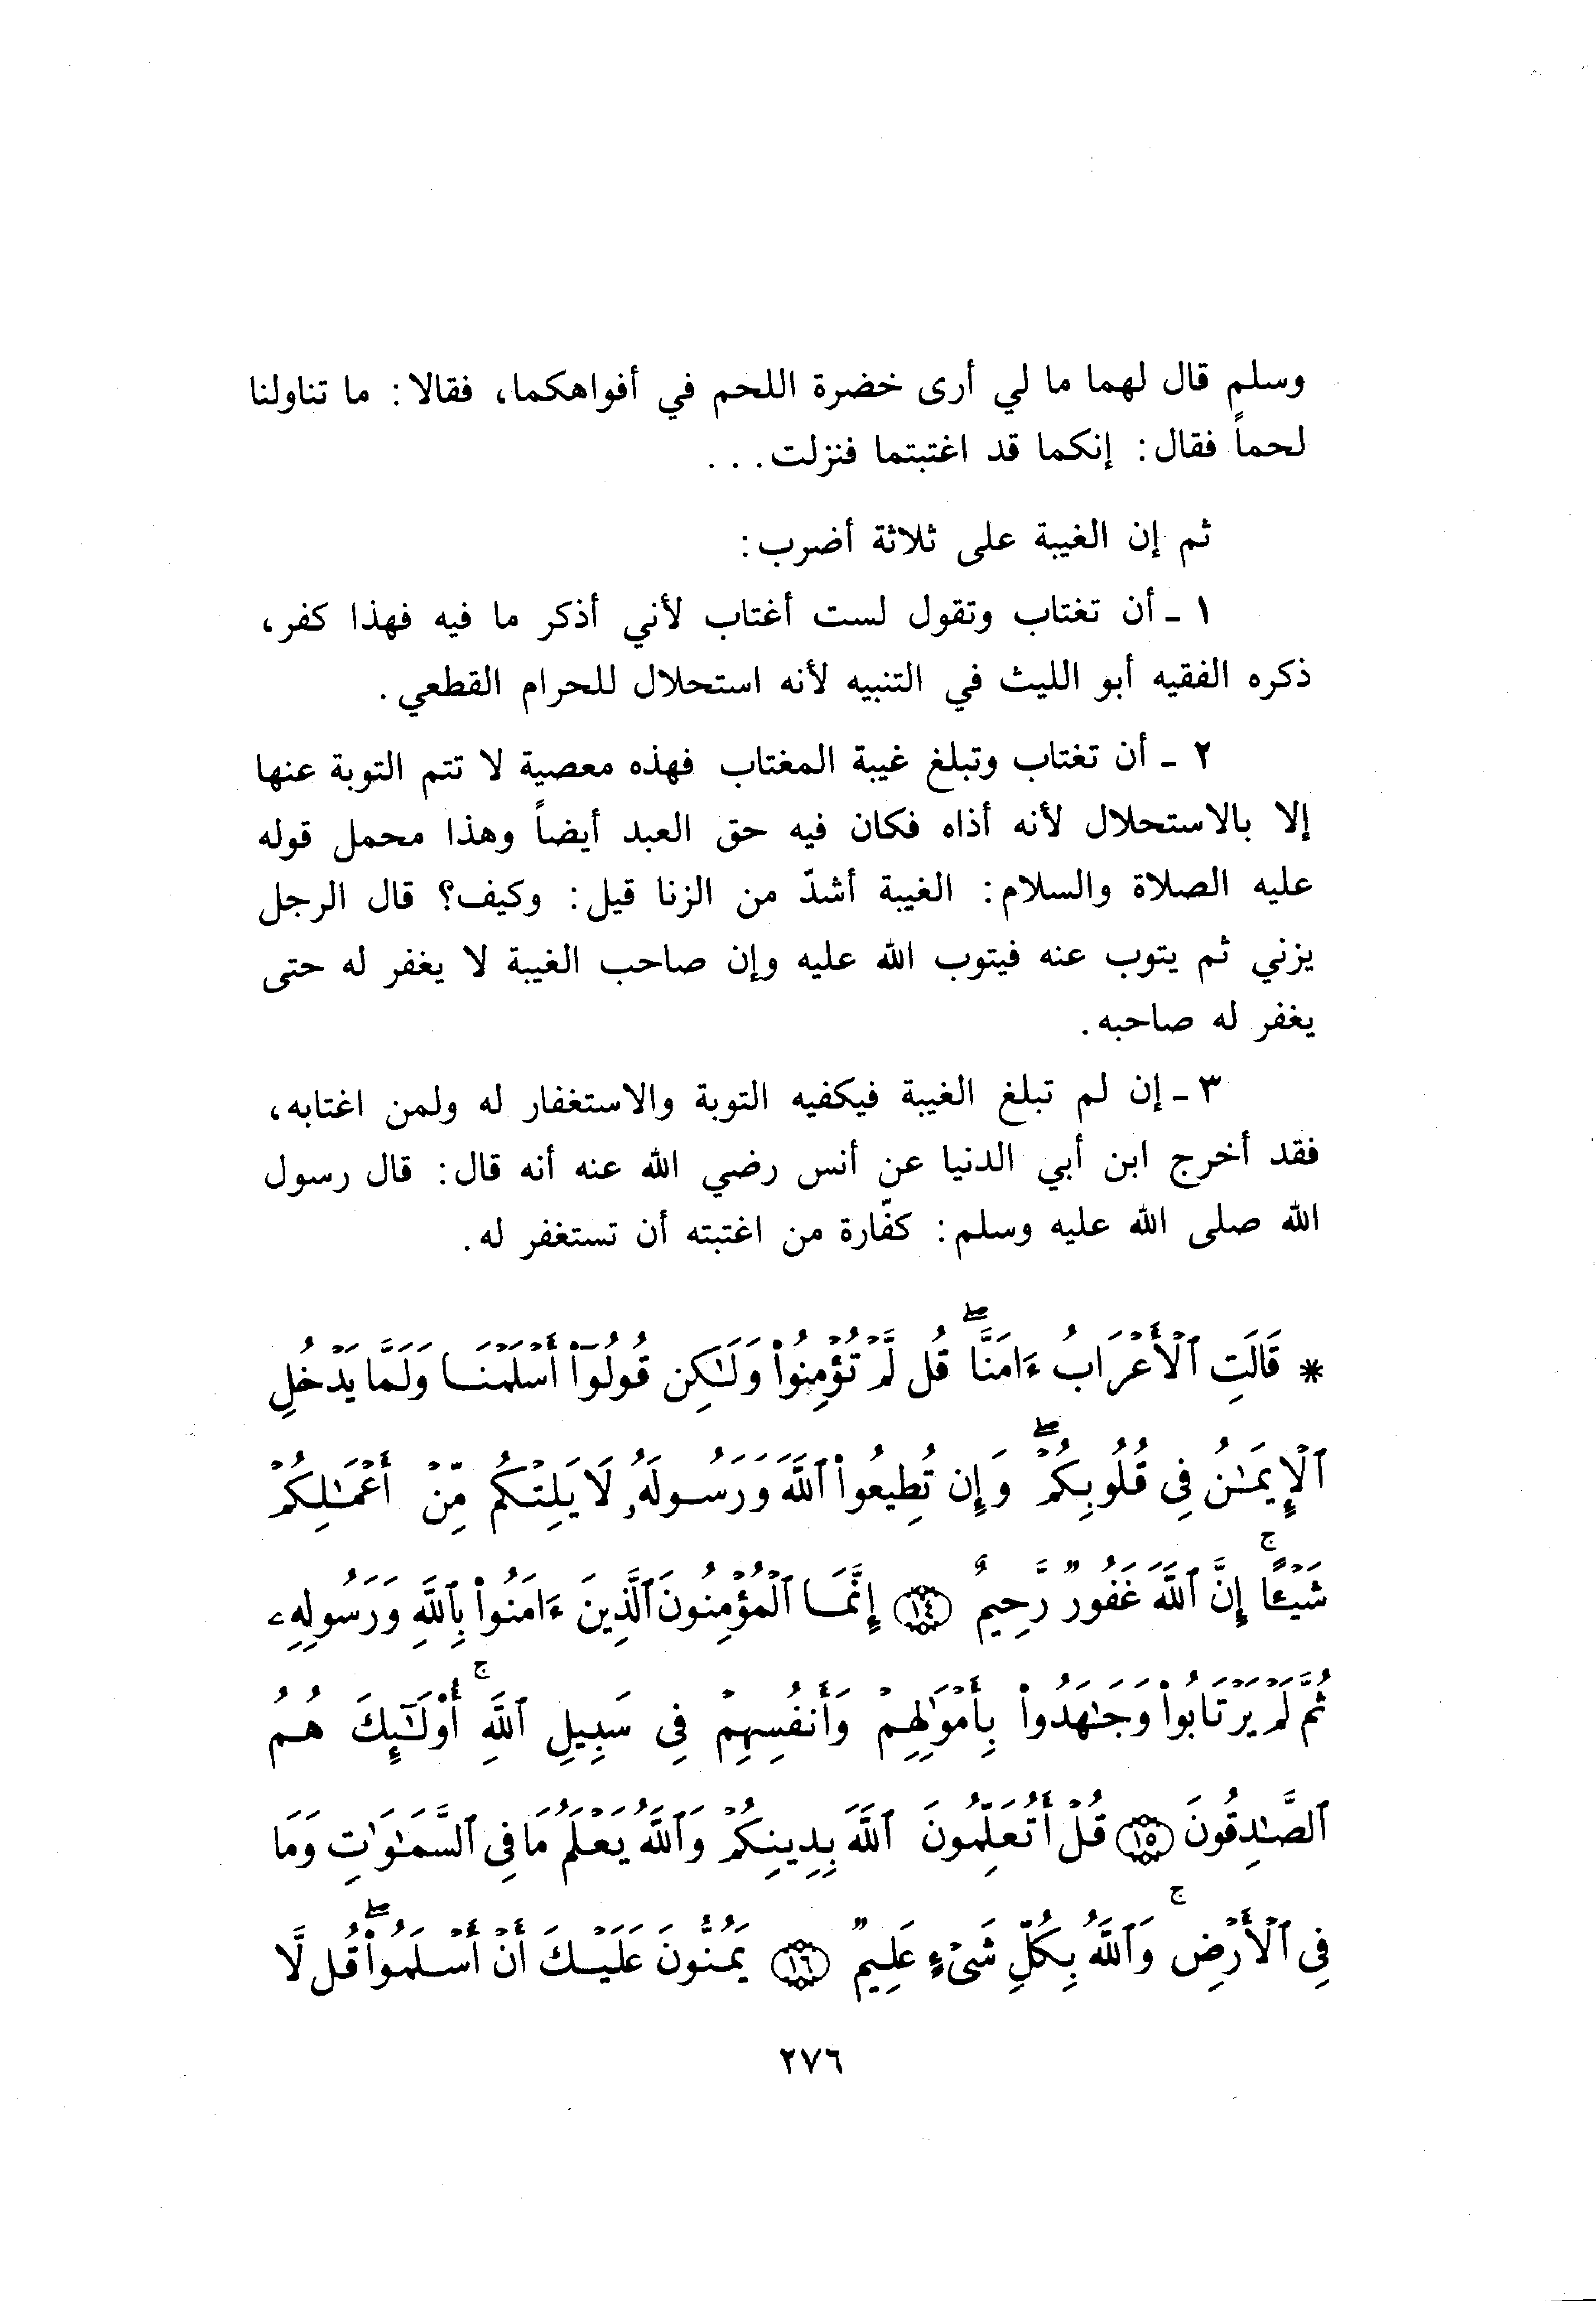 وسلم قال لهما ما لي أرى خضرة اللحم في أفواهكما، فقالا: ما تناولنا
لحماً فقال: إنكما قد اغتبتما فنزلت...
ثم إن الغيبة على ثلاثة أضرب:
١ - أن تغتاب وتقول لست أغتاب لأني أذكر ما فيه فهذا كفر،
ذكره الفقيه أبو الليث في التنبيه لأنه استحلال للحرام القطعي.
٢ - أن تغتاب وتبلغ غيبة المغتاب فهذه معصية لا تتم التوبة عنها
إلا بالاستحلال لأنه أذاه فكان فيه حق العبد أيضاً وهذا محمل قوله
عليه الصلاة والسلام: الغيبة أشدّ من الزنا قيل: وكيف؟ قال الرجل
يزني ثم يتوب عنه فيتوب الله عليه وإن صاحب الغيبة لا يغفر له حتى
يغفر له صاحبه.
٣ - إن لم تبلغ الغيبة فيكفيه التوبة والاستغفار له ولمن اغتابه،
فقد أخرج ابن أبي الدنيا عن أنس رضي الله عنه أنه قال: قال رسول
الله صلى الله عليه وسلم: كفّارة من اغتبته أن تستغفر له.
* قَالَتِ ٱلْأَعْرَابُ ءَامَنَّاۖ قُل لَّمْ تُؤْمِنُوا۟ وَلَـٰكِن قُولُوٓا۟ أَسْلَمْنَا وَلَمَّا يَدْخُلِ
ٱلْإِيمَـٰنُ فِى قُلُوبِكُمْۖ وَإِن تُطِيعُوا۟ ٱللَّهَ وَرَسُولَهُۥ لَا يَلِتْكُم مِّنْ أَعْمَـٰلِكُمْ
شَيْـًٔاۚ إِنَّ ٱللَّهَ غَفُورٌ رَّحِيمٌ ١٤ إِنَّمَا ٱلْمُؤْمِنُونَ ٱلَّذِينَ ءَامَنُوا۟ بِٱللَّهِ وَرَسُولِهِۦ
ثُمَّ لَمْ يَرْتَابُوا۟ وَجَـٰهَدُوا۟ بِأَمْوَٰلِهِمْ وَأَنفُسِهِمْ فِى سَبِيلِ ٱللَّهِۚ أُو۟لَـٰٓئِكَ هُمُ
ٱلصَّـٰدِقُونَ ١٥ قُلْ أَتُعَلِّمُونَ ٱللَّهَ بِدِينِكُمْ وَٱللَّهُ يَعْلَمُ مَا فِى ٱلسَّمَـٰوَٰتِ وَمَا
فِى ٱلْأَرْضِۚ وَٱللَّهُ بِكُلِّ شَىْءٍ عَلِيمٌ ١٦ يَمُنُّونَ عَلَيْكَ أَنْ أَسْلَمُوا۟ۖ قُل لَّا
٢٧٦